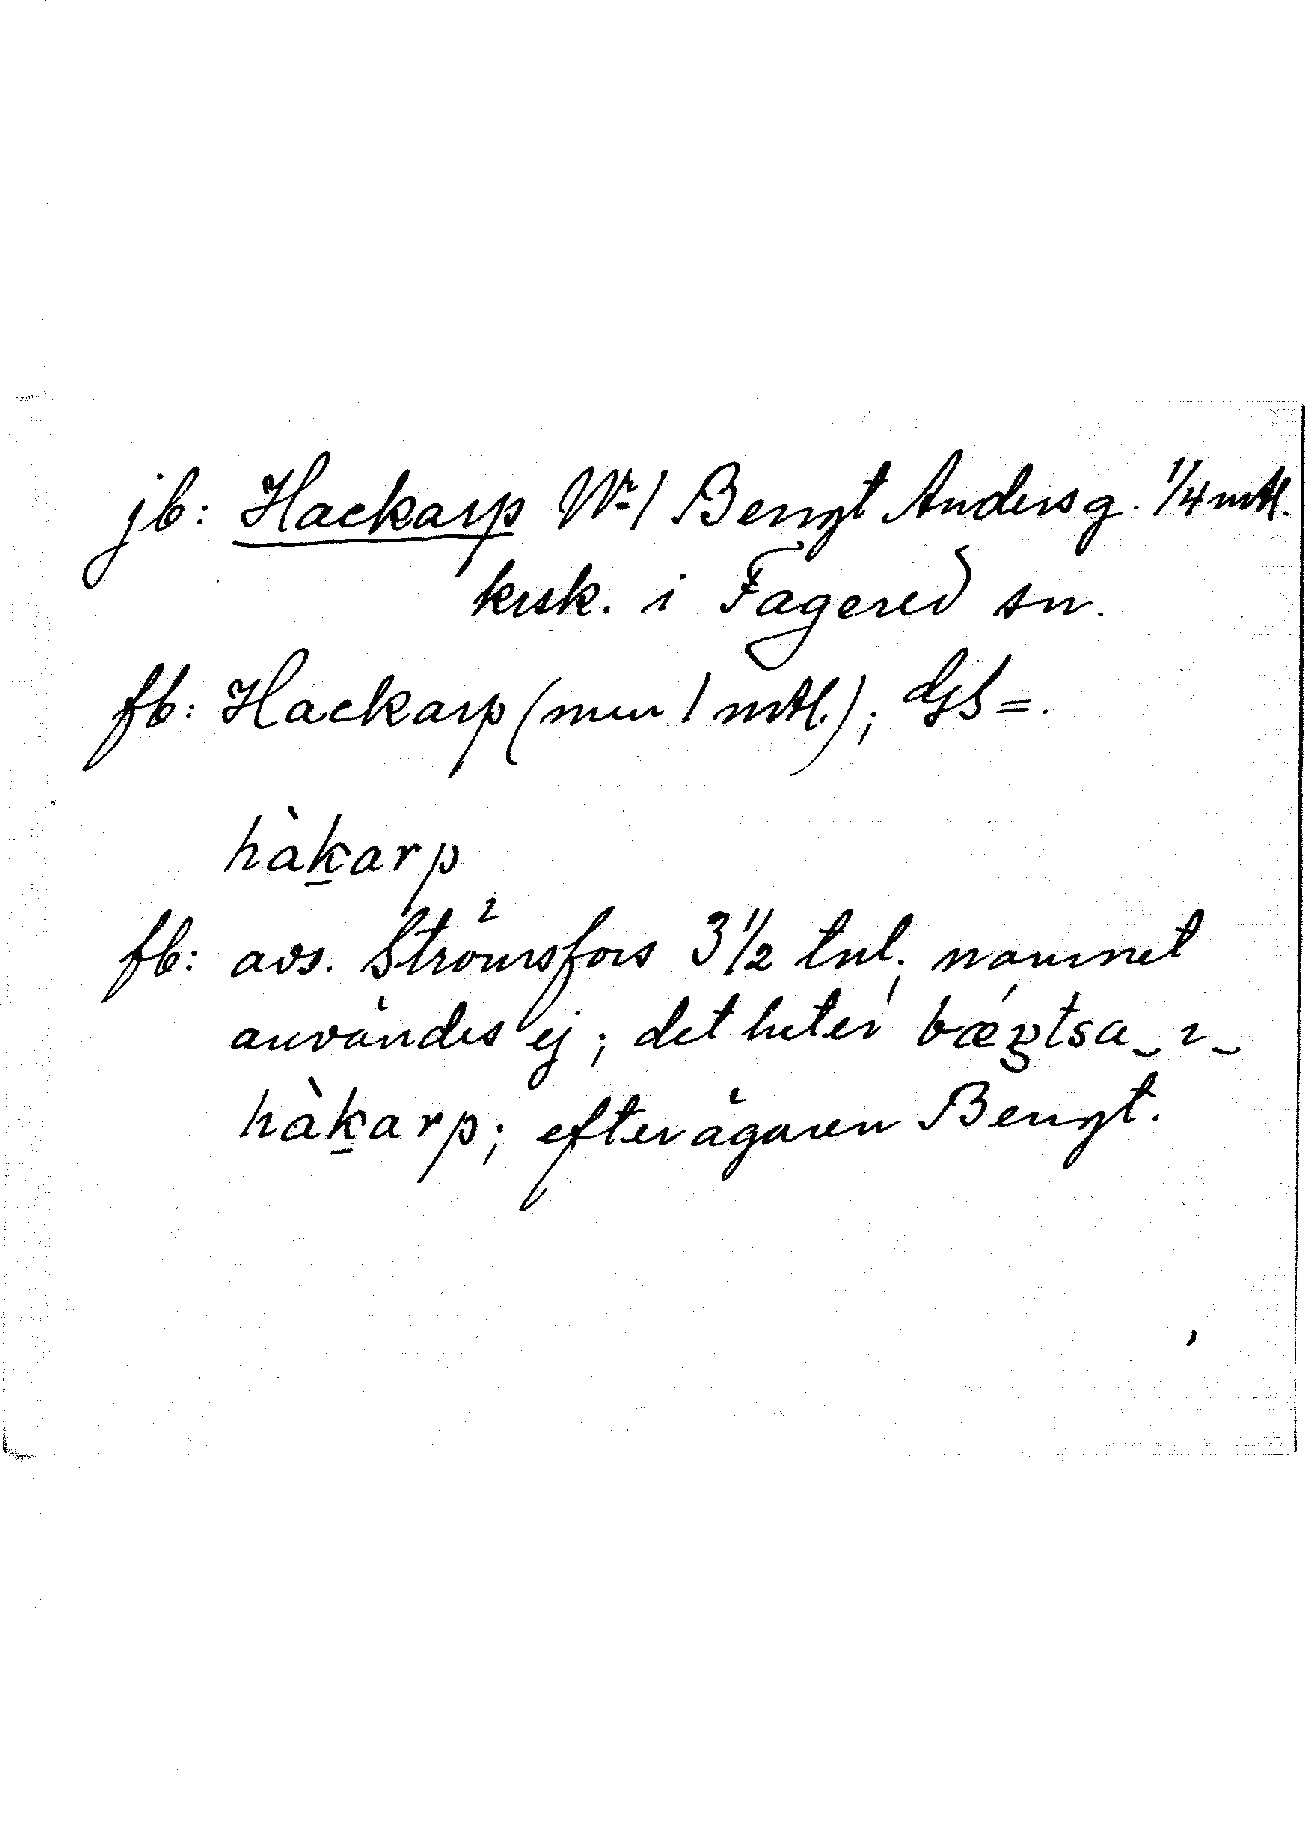 jb: Hackarp No 1 Bengt Andersg. 1/4 mtl.
krsk. i Fagered sn.
fb: Hackarp (men 1 mtl.); GS =.
hàk̲arp
fb: avs. Strömsfors 3 1/2 tnl. namnet
användes ej; det heter bǽŋtsa‿ı‿
hàk̲arp; efter ägaren Bengt.